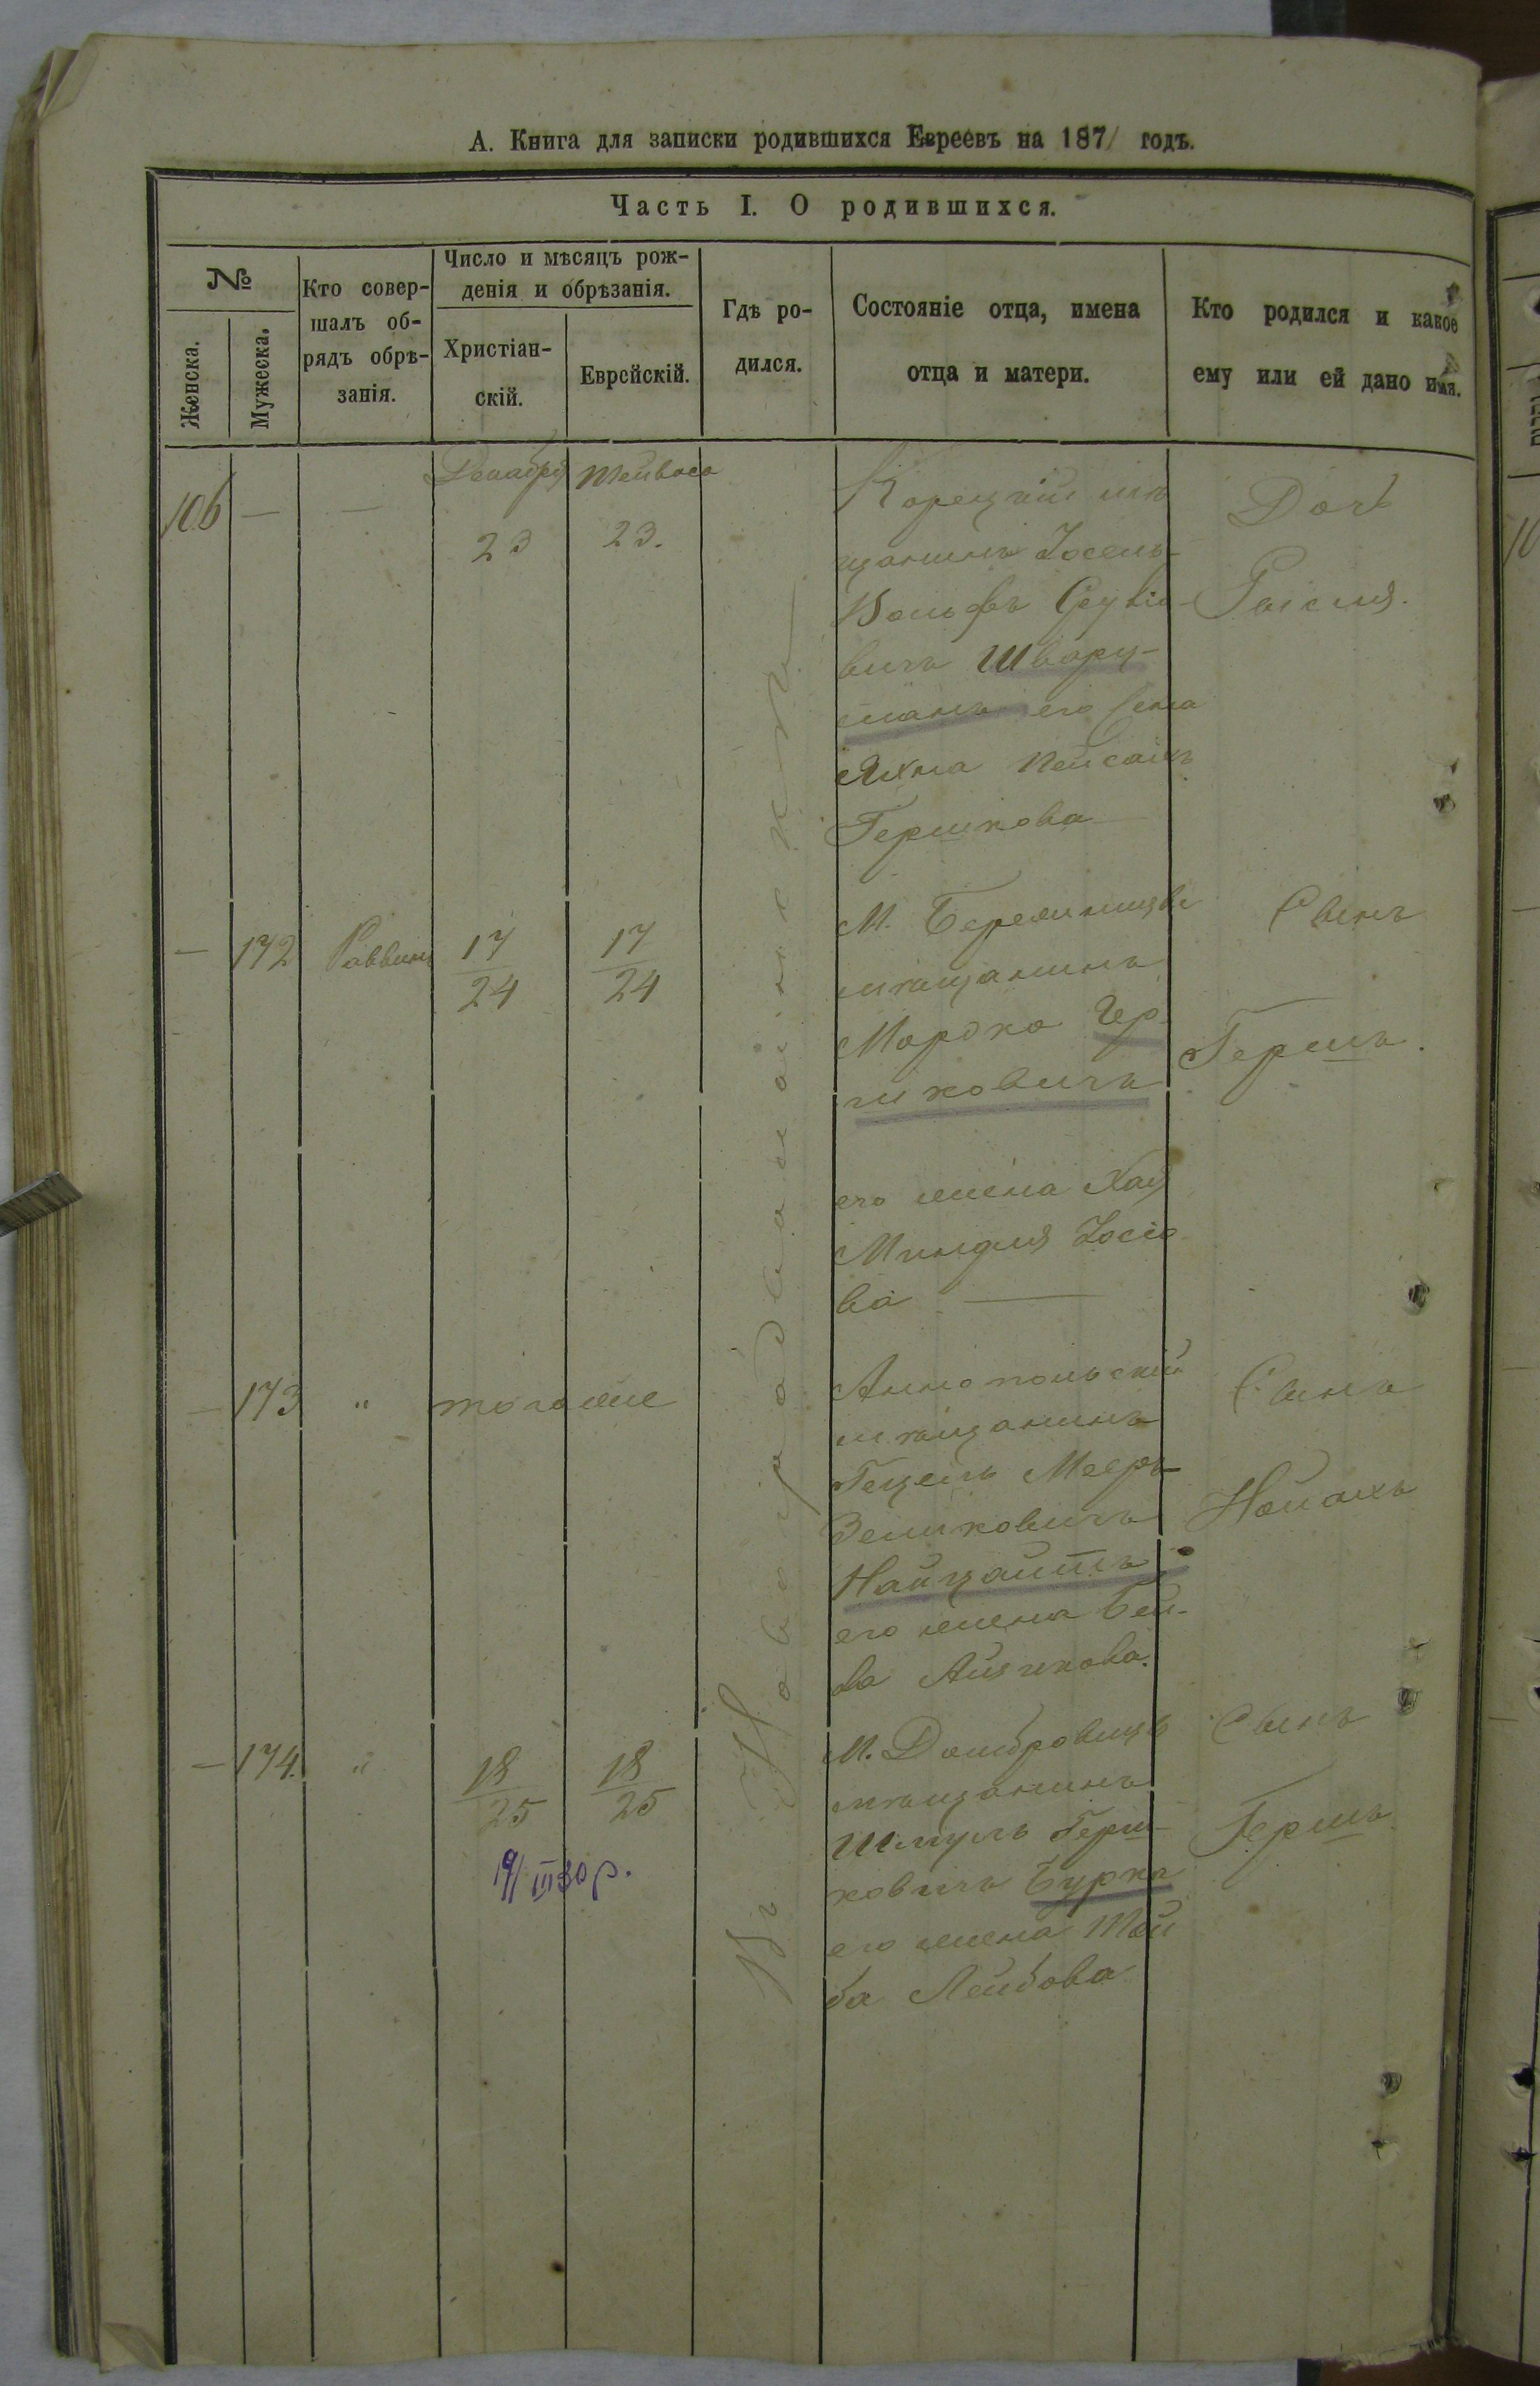 А. Книга для записки родившихся Евреевъ на 1871 годъ.
Часть I. О родившихся.
№
Женска.
Мужеска.
Кто совер-
шалъ об-
рядъ обрѣ-
занія.
Число и мѣсяцъ рож-
денія и обрѣзанія.
Христіан-
скій.
Еврейскій.
Гдѣ ро-
дился.
Состояніе отца, имена
отца и матери.
Кто родился и какое
ему или ей дано имя.
Въ Новоградволынскѣ
106 — —
Декабря
23
Тейвоса
23.
Корецкій мѣ
щанинъ Іосель-
Вольфъ
вичъ Шварц-
манъ его жена
Яхна Пейсахъ
Гершкова
Дочь
Рисия.
— 172 Раввинъ
17
24
17
24
М. Бережницы
мѣщанинъ
Мордко Гер-
шковичъ
его жена Хая
Миндля Іосіо
ва
Сынъ
Гершъ.
— 173 " тогоже
Аннопольскій
мѣщанинъ
Гецель Мееръ-
Зельковичъ
Найцайтъ
его жена Бей-
ла Айзикова.
Сынъ
Нойахъ
— 174. "
18
25
18
25
19/III 30 р.
М. Домбровицъ
мѣщанинъ
Шмуль Герш-
ковичъ Бурко
его жена Той
ба Лейбова
Сынъ
Гершъ.